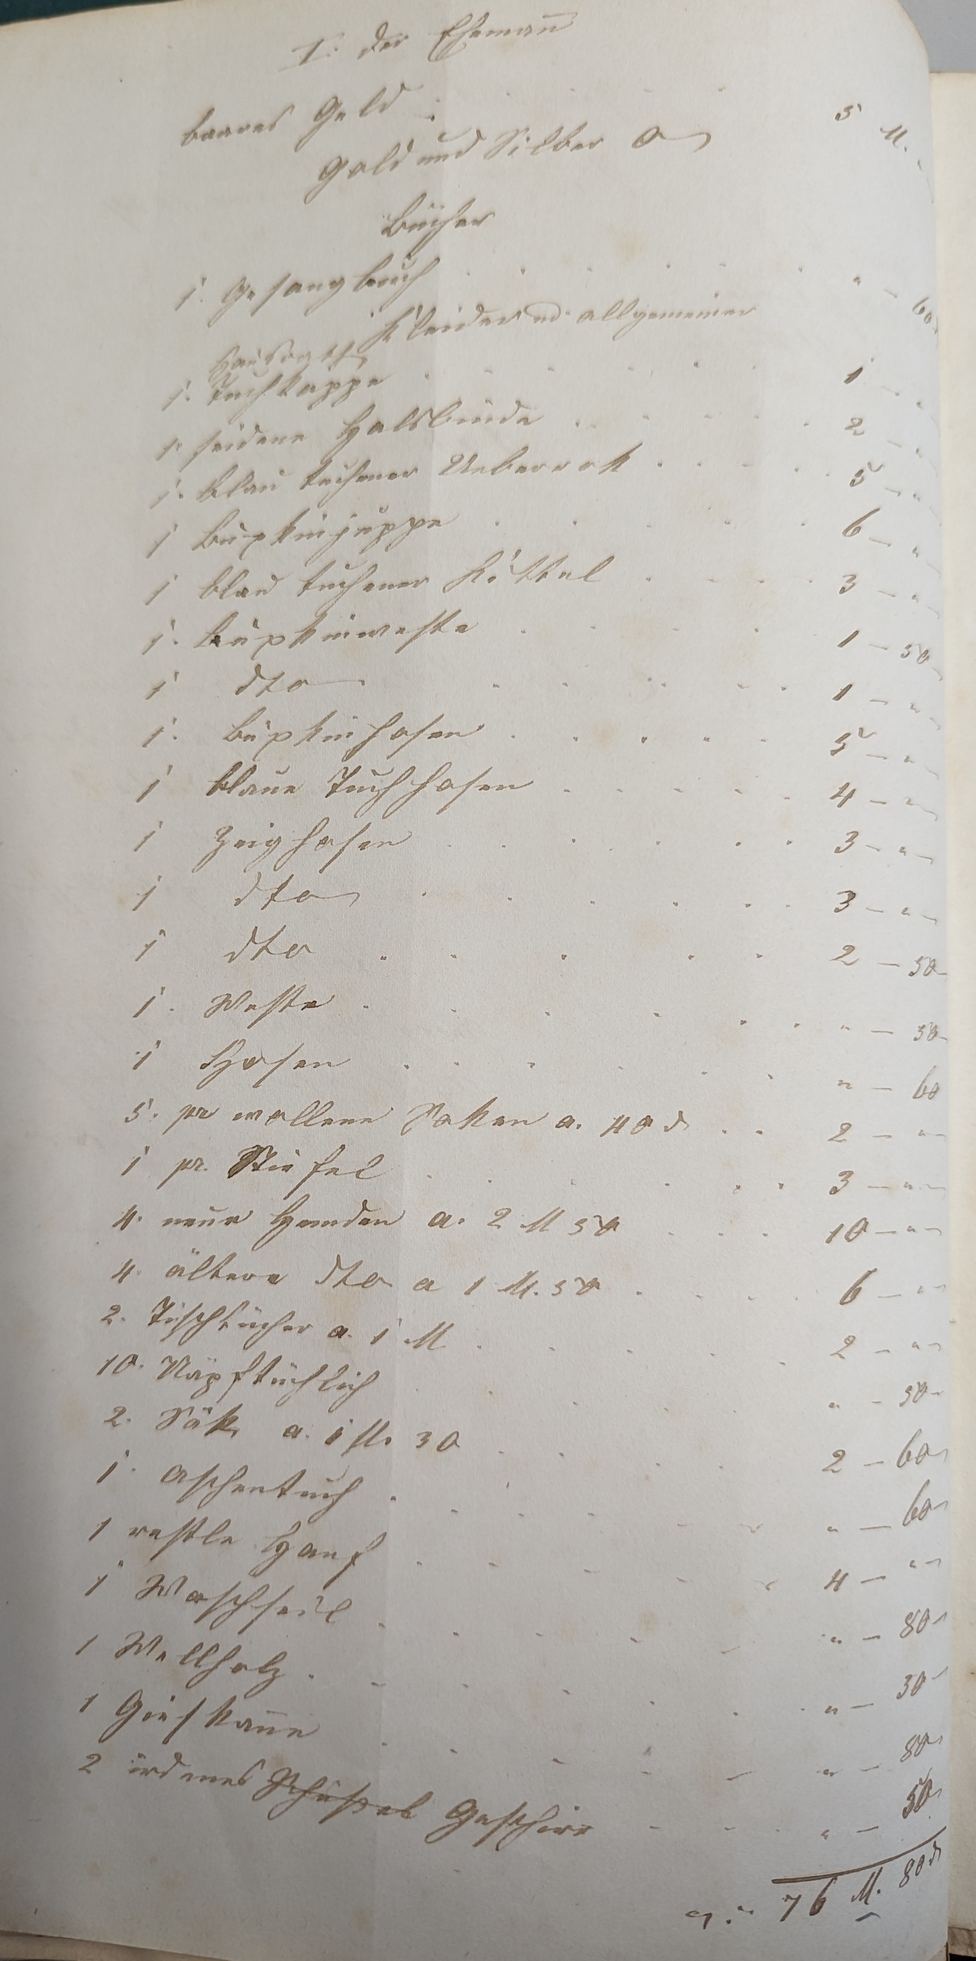 I. der Ehemañ
baares Geld . . . . 5 M.
Gold und Silber O
Bücher
1. Gesangbuch . . . . . " – 60
Kleider und allgemeiner
Hausrath
1. Tuchkappe . . . . . 1 – "
1. seidene Halsbinde . . . . 2 – "
1. blau tuchener Ueberrok . . . . 5 – "
1 Buxkinjuppe . . . . 6 – "
1 blau tuchener Kittel . . . . 3 – "
1. Buxkinweste . . . . 1 – 50
1 dto . . . . . 1 – "
1. Buxkinhosen . . . . . 5 – "
1 blaue Tuchhosen . . . . . 4 – "
1 Zeighosen . . . . . 3 – "
1 dto . . . . . 3 – "
1 dto . . . . . 2 – 50
1. Weste . . . . . " – 50
1 Hosen . . . . . " – 60
5. pr wollene Soken a. 40 d . . 2 – "
1 pr. Stiefel . . . . . 3 – "
4. neue Hemden a. 2 M 50 . . . 10 – "
4. ältere dto a 1 M. 50 . . . . 6 – "
2. Tischtücher a. 1 M . . . . . 2 – "
10. . . " – 50
2. Säk a. 1 M. 30 . . . . 2 – 60
1. Aschentuch . . . . . " – 60
1 restle Hanf . . . . . 4 – "
1 Waschseil . . . . . " – 80
1 Wellholz . . . . . " – 30
1 Gieskañe . . . . . " – 80
2 irdenes Schüssel Geschirr . . . . " – 50
76 M. 80 d